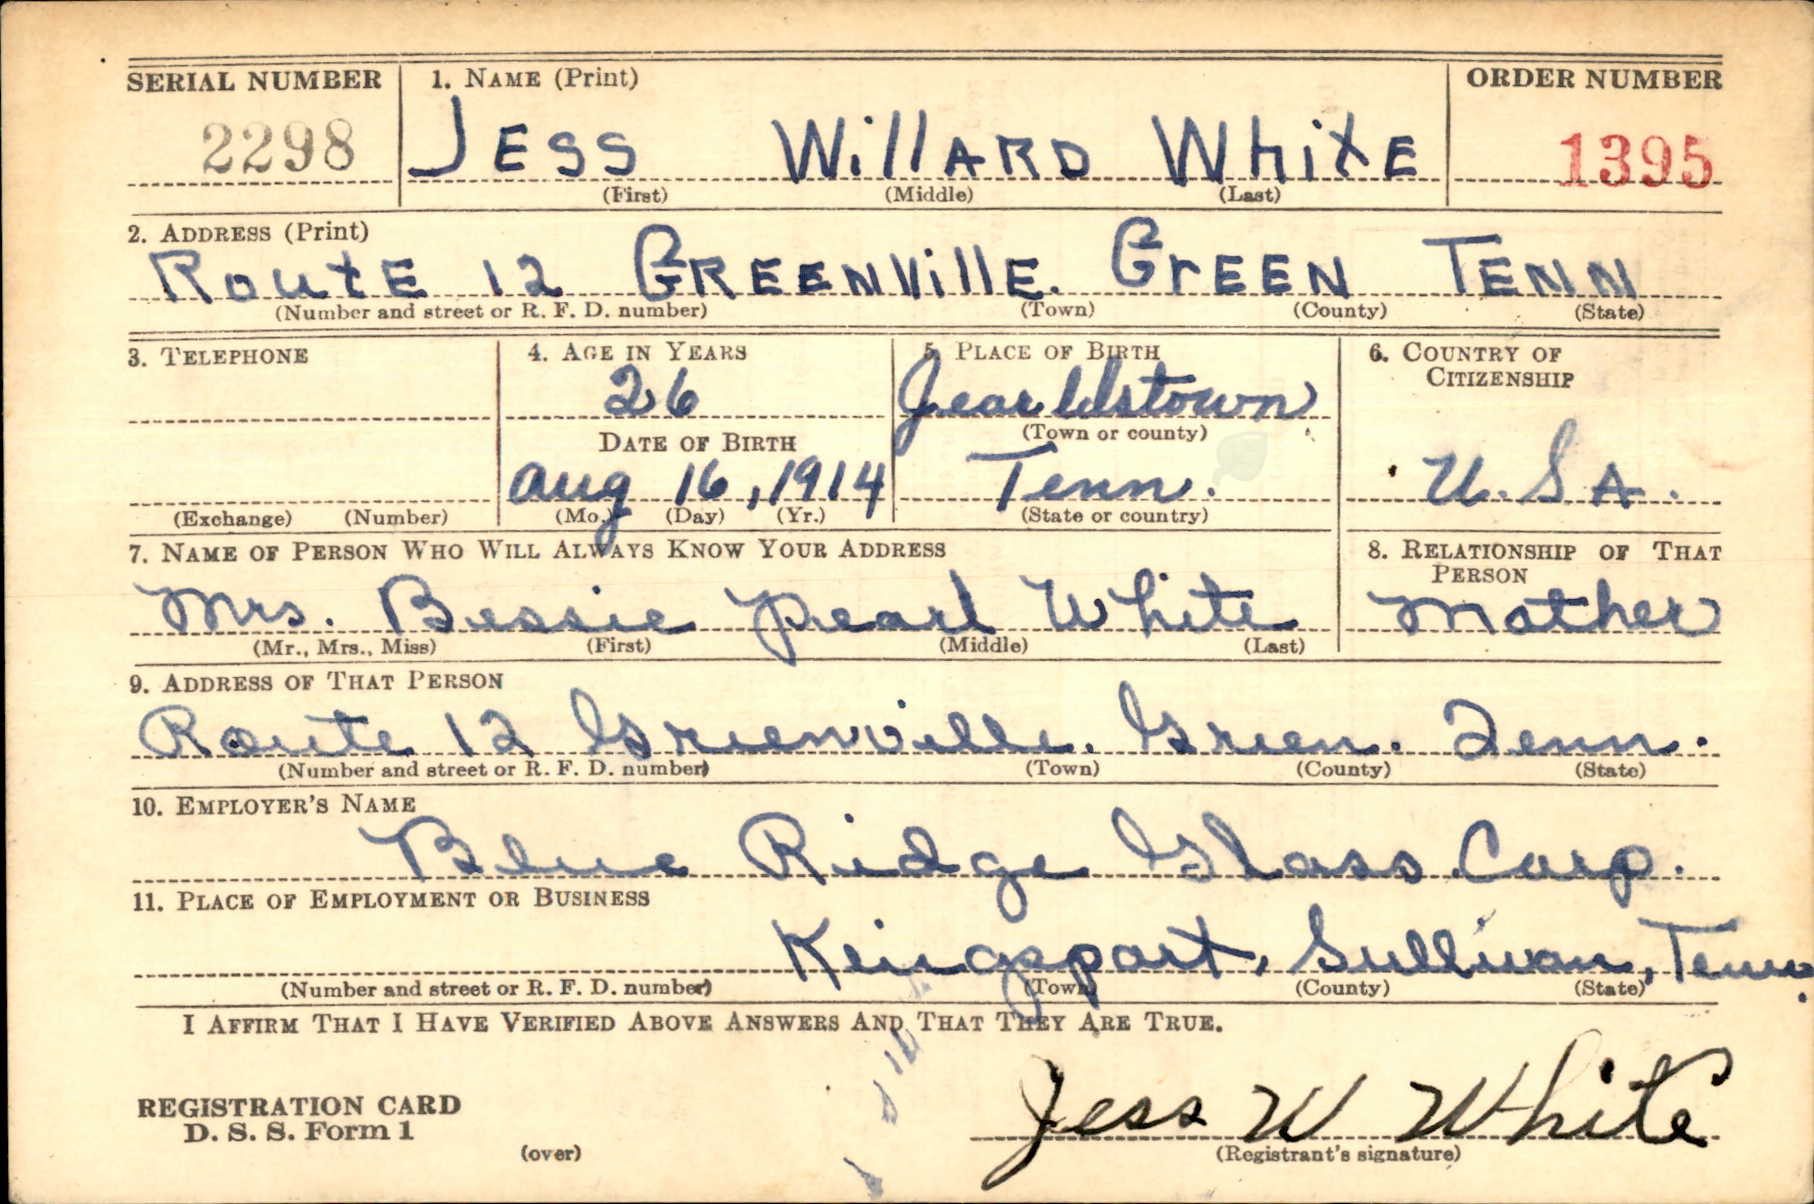 SERIAL NUMBER 1. NAME (Print) ORDER NUMBER
2298 JESS WillARD WhitE 1395
(First) (Middle) (Last)
2. ADDRESS (Print)
RoutE 12 GREENVillE. GrEEN TENN
(Number and street or R. F. D. number) (Town) (County) (State)
3. TELEPHONE 4. AGE IN YEARS 5. PLACE OF BIRTH 6. COUNTRY OF
CITIZENSHIP
26 Jearldstown
(Town or county)
DATE OF BIRTH
Aug 16, 1914 Tenn. U. S A.
(Exchange) (Number) (Mo.) (Day) (Yr.) (State or country)
7. NAME OF PERSON WHO WILL ALWAYS KNOW YOUR ADDRESS 8. RELATIONSHIP OF THAT
PERSON
Mrs. Bessie Pearl White Mother
(Mr., Mrs., Miss) (First) (Middle) (Last)
9. ADDRESS OF THAT PERSON
Route 12 Greenville. Green. Tenn.
(Number and street or R. F. D. number) (Town) (County) (State)
10. EMPLOYER'S NAME
Blue Ridge Glass Corp.
11. PLACE OF EMPLOYMENT OR BUSINESS
Keingsport, Sullivan, Tenn.
(Number and street or R. F. D. number) (Town) (County) (State)
I AFFIRM THAT I HAVE VERIFIED ABOVE ANSWERS AND THAT THEY ARE TRUE.
REGISTRATION CARD
D. S. S. Form 1
Jess W White
(over) (Registrant's signature)